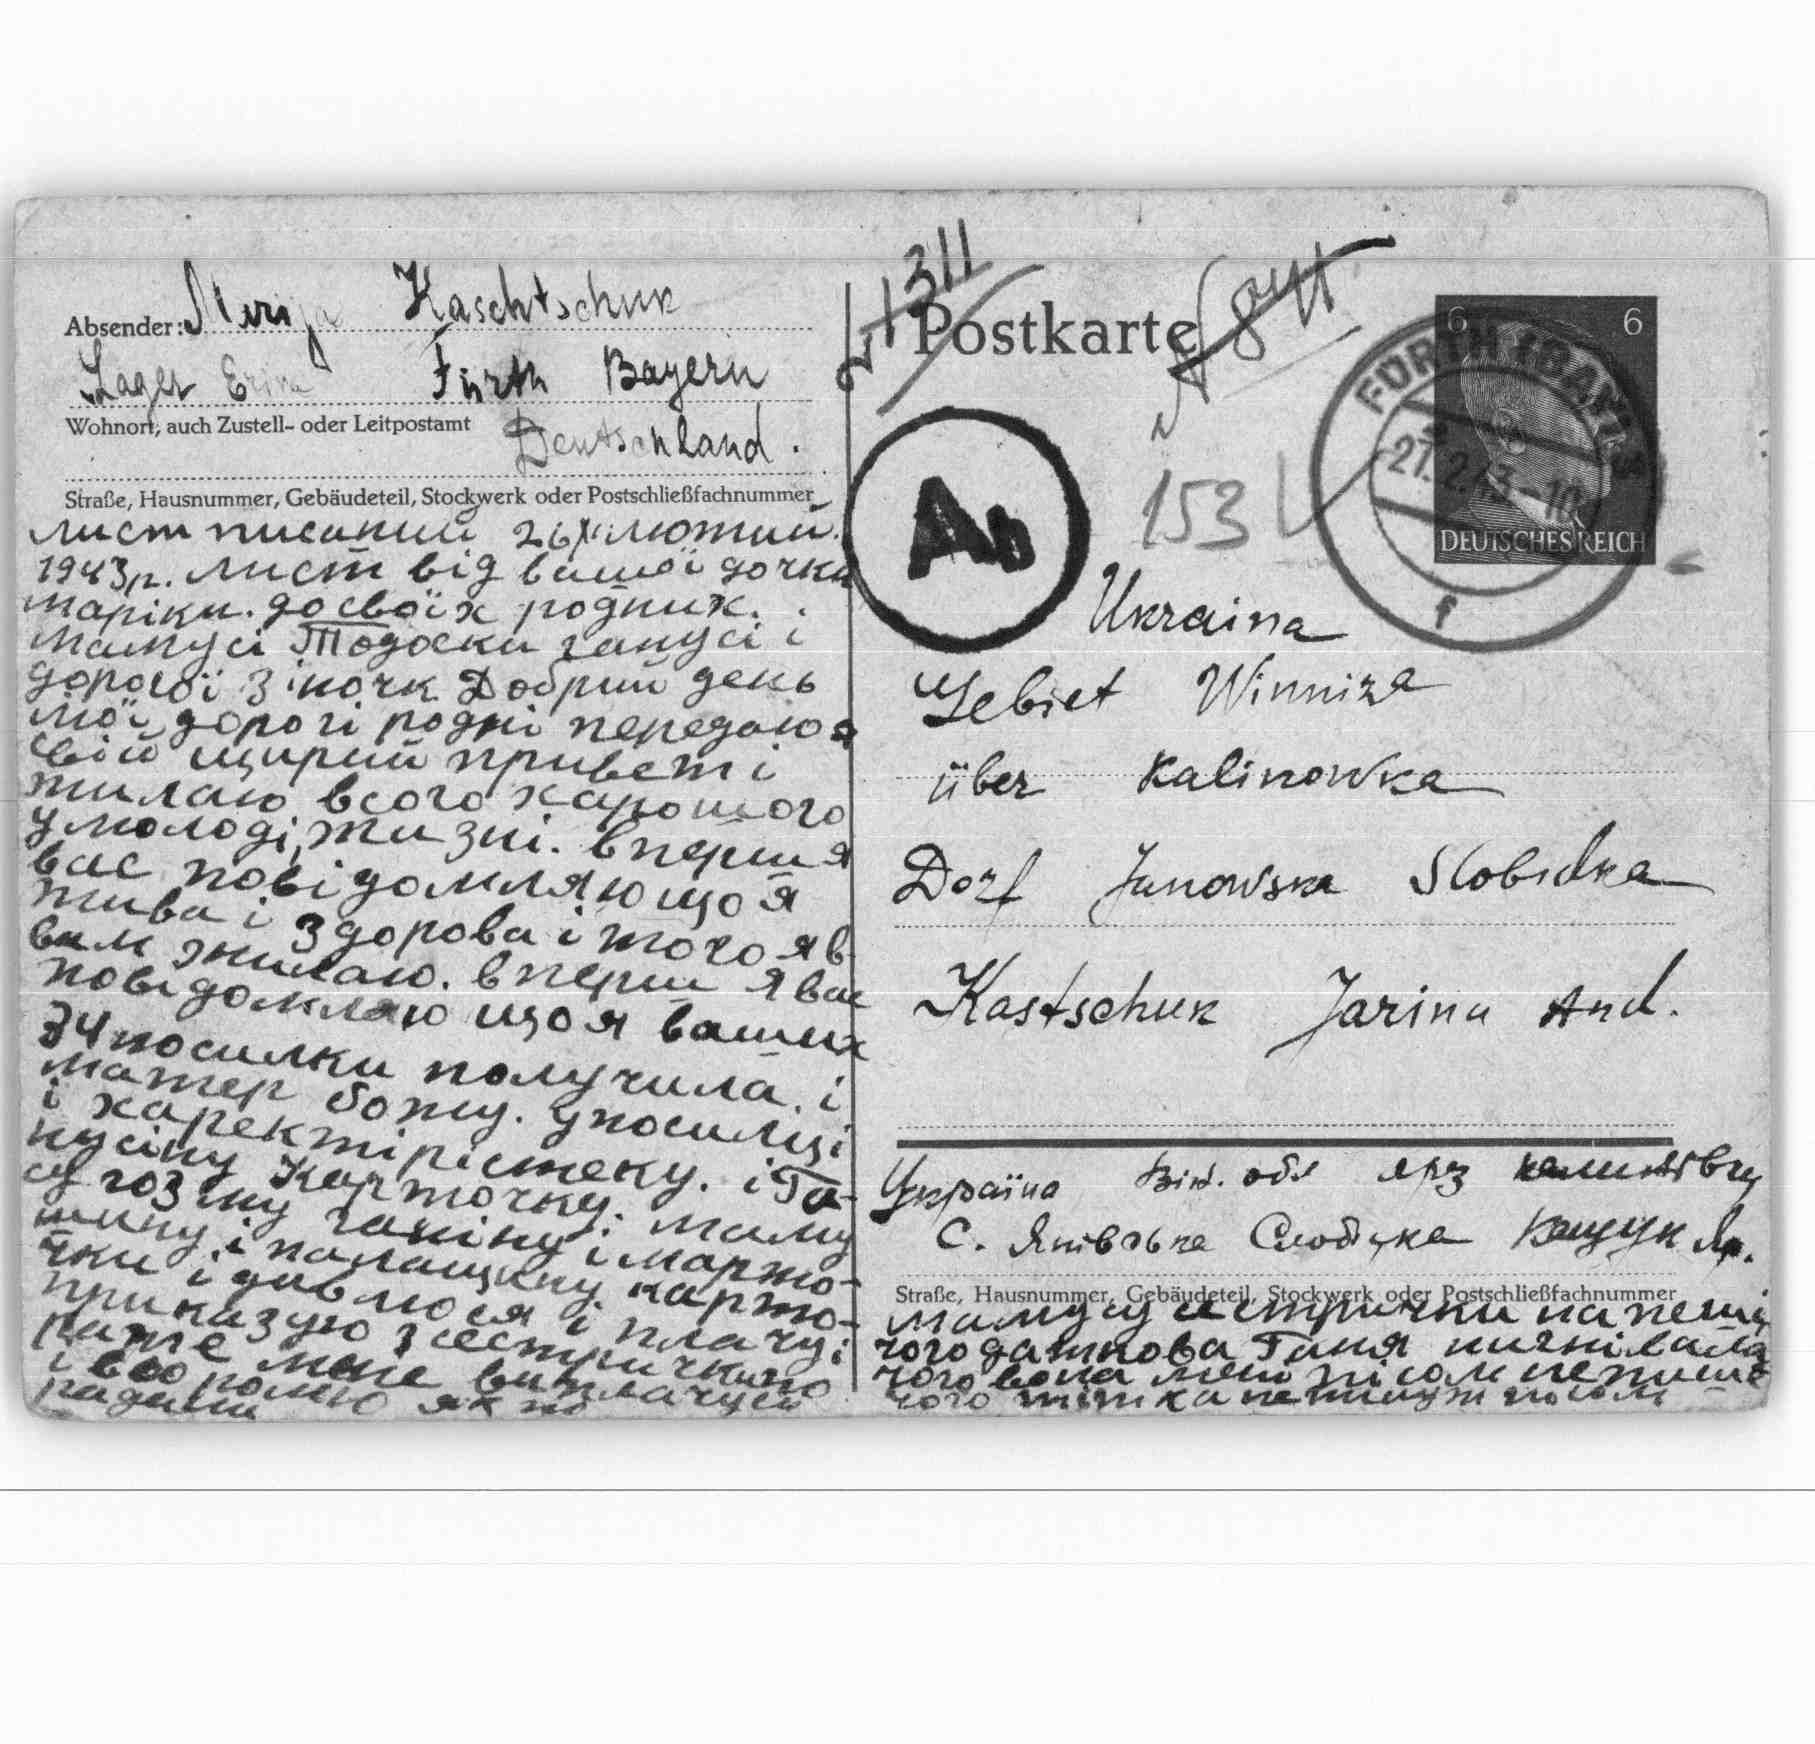 Absender: Merija Kaschtschuk
Lager Erika Fürth Bayern
Wohnort, auch Zustell- oder Leitpostamt
Deutschland.
Straße, Hausnummer, Gebäudeteil, Stockwerk oder Postschließfachnummer
лист писаний 26 лютий.
1943р. лист від вашої дочки
маріки. до своїх родних.
мамусі Тодоски ганусі і
дорогої зіночк Добрий день
мої дорогі родні передаю я
свій щирий привет і
жилаю всого харошого
у молоді жизні. вперш я
вас повідомляю що я
жива і здорова і того я в
вам жилаю. вперш я вас
повідомляю що я ваших
3 ч посилки получила. і
матер божу. у посилці
і харектірістеку. і Га-
нусіну карточку. маму
шину і палащину карто-
чки і дивлюся і плачу і
приказую з сестричкою
1311
Postkarte
6 6
FÜRTH (BAY)
27.2.43.-10
f
DEUTSCHES REICH
Ab
153
Ukraina
Gebiet Winniza
über Kalinowka
Dorf Janowska Slobidka
Kastschuk Jarina And.
Україна Він. обл
С. Янівська Слобідка Кащук Яр.
Straße, Hausnummer, Gebäudeteil, Stockwerk oder Postschließfachnummer
чого вона мені пісом непише